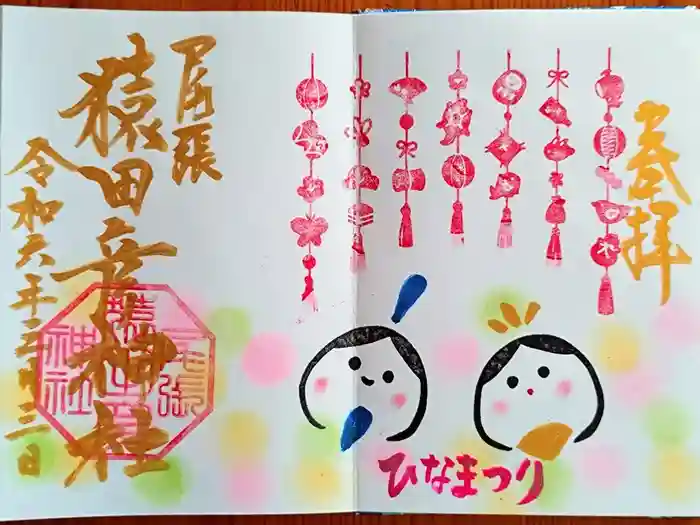 奉拝
ひなまつり
尾張
猿田彦神社
令和六年三月三日
尾張
猿田彦
神社